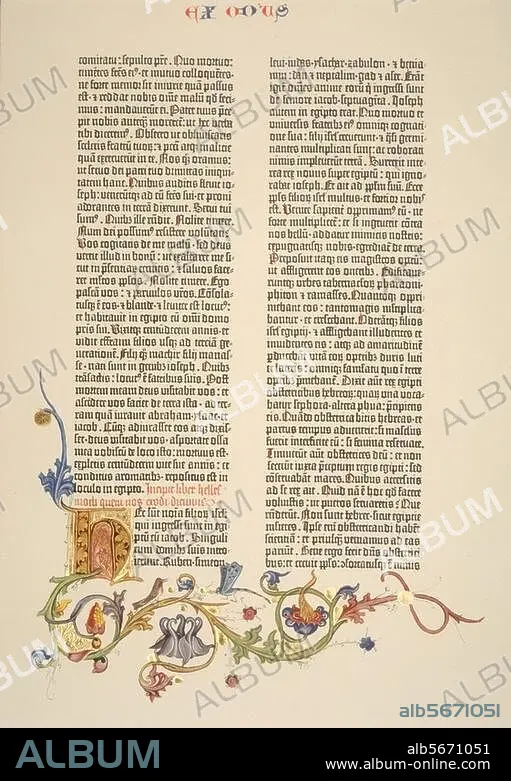 EXODUS
comitatu: sepulto pr̃e. Quo mortuo:
timẽtes fr̃es eiꝰ · et mutuo colloquẽtes ·
ne forte memor sit iniurie quam passus
est · ⁊ reddat nobis om̃e malũ qď feci-
mus: mandauerũt ei. Pater tuus
tibi diceremꝰ. Obsecro ut obliuiscaris
sceleris fratrũ tuoꝝ:
quã exercuerũt in te. Nos q̃ oramus:
ut seruo dei patri tuo dimittas iniqui-
tatem hanc. Quibus auditis fleuit io-
seph: veneruntq; ad eũ fr̃es sui · et proni
adorantes in terrã dixerunt. Serui tui
sumꝰ. Quibꝰ ille rñdit. Nolite timere.
Num dei possumꝰ resistere volũtati?
Vos cogitastis de me malũ · sed deus
vertit illud in bonũ: ut exaltaret me si-
cut in p̃sentiarũ cernitis: ⁊ saluos face-
ret m̃tos ppl̃os. Nolite timere. Ego
pascã vos: ⁊ p̃uulos vr̃os.
et habitauit in egipto cũ om̃i domo
pris sui. Vixitq; centũdecem annis · et
vidit effraim filios usq; ad terciã ge-
nerationẽ. Filij q̃; machir filij manas-
se · nati sunt in genibꝰ ioseph. Quibꝰ
trãsactis: locutꝰ ẽ fratribus suis. Post
mortem meam deus visitabit vos: et
ascẽdere vos faciet de terra ista · ad ter-
ram quã iurauit abraham · ysaac · et
iacob. Cũq; adiurasset eos atq; dixis-
set · deus visitabit vos · asportate ossa
mea vobiscũ de loco isto: mortuus est ·
expletis centũdecem vite sue annis: et
conditus aromatibꝰ · repositus est in
loculo in egipto. Incipit liber helles-
moth quem nos exodũ dicimus
Hec sunt noĩa filioꝝ isrl̃
qui ingressi sunt in egi-
ptũ cũ iacob. Singuli
cum domibꝰ suis intro-
ierunt. Ruben · simeon ·
leui · iudas · ysachar · zabulon · ⁊ benia-
min: dan ⁊ neptalim · gad ⁊ aser. Erãt
igiť om̃es anime eorũ q̃ ingressi sunt
de femore iacob · septuaginta. Joseph
autem in egipto erat. Quo mortuo et
uniuersis fratribꝰ eiꝰ · omniq; cognati-
one sua: filij isrl̃ creuerunt · ⁊ q̃si germi-
nantes multiplicati sunt: ac roborati
nimis impleuerũt terrã. Surrexit inte-
rea rex nouus super egiptũ: qui igno-
rabat ioseph. Et ait ad pp̃lm suũ. Ecce
pp̃ls filioꝝ isrl̃ multus · et fortior nobis
est. Venite sapienter opprimamꝰ eũ: ne
forte multiplicet̃: et si ingruerit cõtra
nos bellũ · addatur inimicis nostris:
expugnatisq; nobis · egrediat̃ de terra.
Preposuit itaq; eis magistros operũ:
ut affligerent eos oneribꝫ. Edificaue-
runtq; urbes tabernaculoꝝ pharaoni ·
phiton ⁊ ramasses. Quantoq; oppri-
mebant eos: tantomagis multiplica-
bantur · et crescebant. Oderãtq; filios
isrl̃ egiptij · ⁊ affligebant illudentes et
inuidentes eis: atq; ad amaritudinẽ
p̃ducebãt vitã eoꝝ operibꝫ duris luti
et lateris: omniq; famulatu quo ĩ terre
operibꝫ p̃mebant̃. Dixit aut̃ rex egipti
obstetricibus hebreoꝝ: quaꝝ una voca-
batur sephora · altera phua: p̃cipiens
eis. Quãdo obstetricabitis hebreas · et
partus tempus aduenerit: si masculus
fuerit interficite eũ: si femina reseruate.
Timuerũt aut̃ obstetrices deũ: et non
fecerũt iuxta p̃ceptum regis egipti: sed
cõseruabãt mares. Quibus accersitis
ad se rex ait. Quid nã ẽ hoc qď facere
voluistis: ut pueros seruaretis? Que
rñderũt. Non sunt hebree · sicut egiptie
mlieres. Ipse em̃ obstetricandi habẽt
scientiã: et priusq̃ veniamus ad eas
pariũt. Bene ergo fecit deus obstetrici-
bus: et creuit ppl̃s:
ALBUM
alb5671051
ALBUM
alb5671051
www.album-online.com